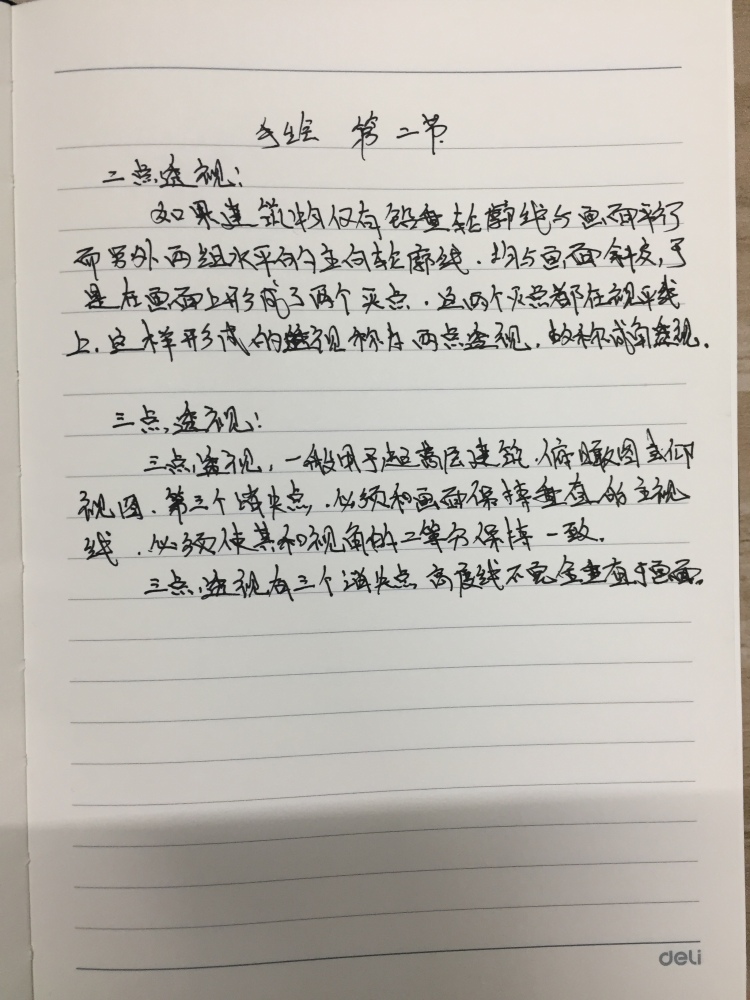 手绘 第二节
二点透视:
如果建筑物仅有铅垂轮廓线与画面平行
而另外两组水平的主向轮廓线,均与画面斜交,于
是在画面上形成了两个灭点,这两个灭点都在视平线
上,这样形成的透视称为两点透视,故称成角透视.
三点透视:
三点透视,一般用于超高层建筑,俯瞰图或仰
视图,第三个消失点,必须和画面保持垂直的主视
线,必须使其和视角的二等分保持一致.
三点透视有三个消失点 高度线不完全垂直于画面.
deli